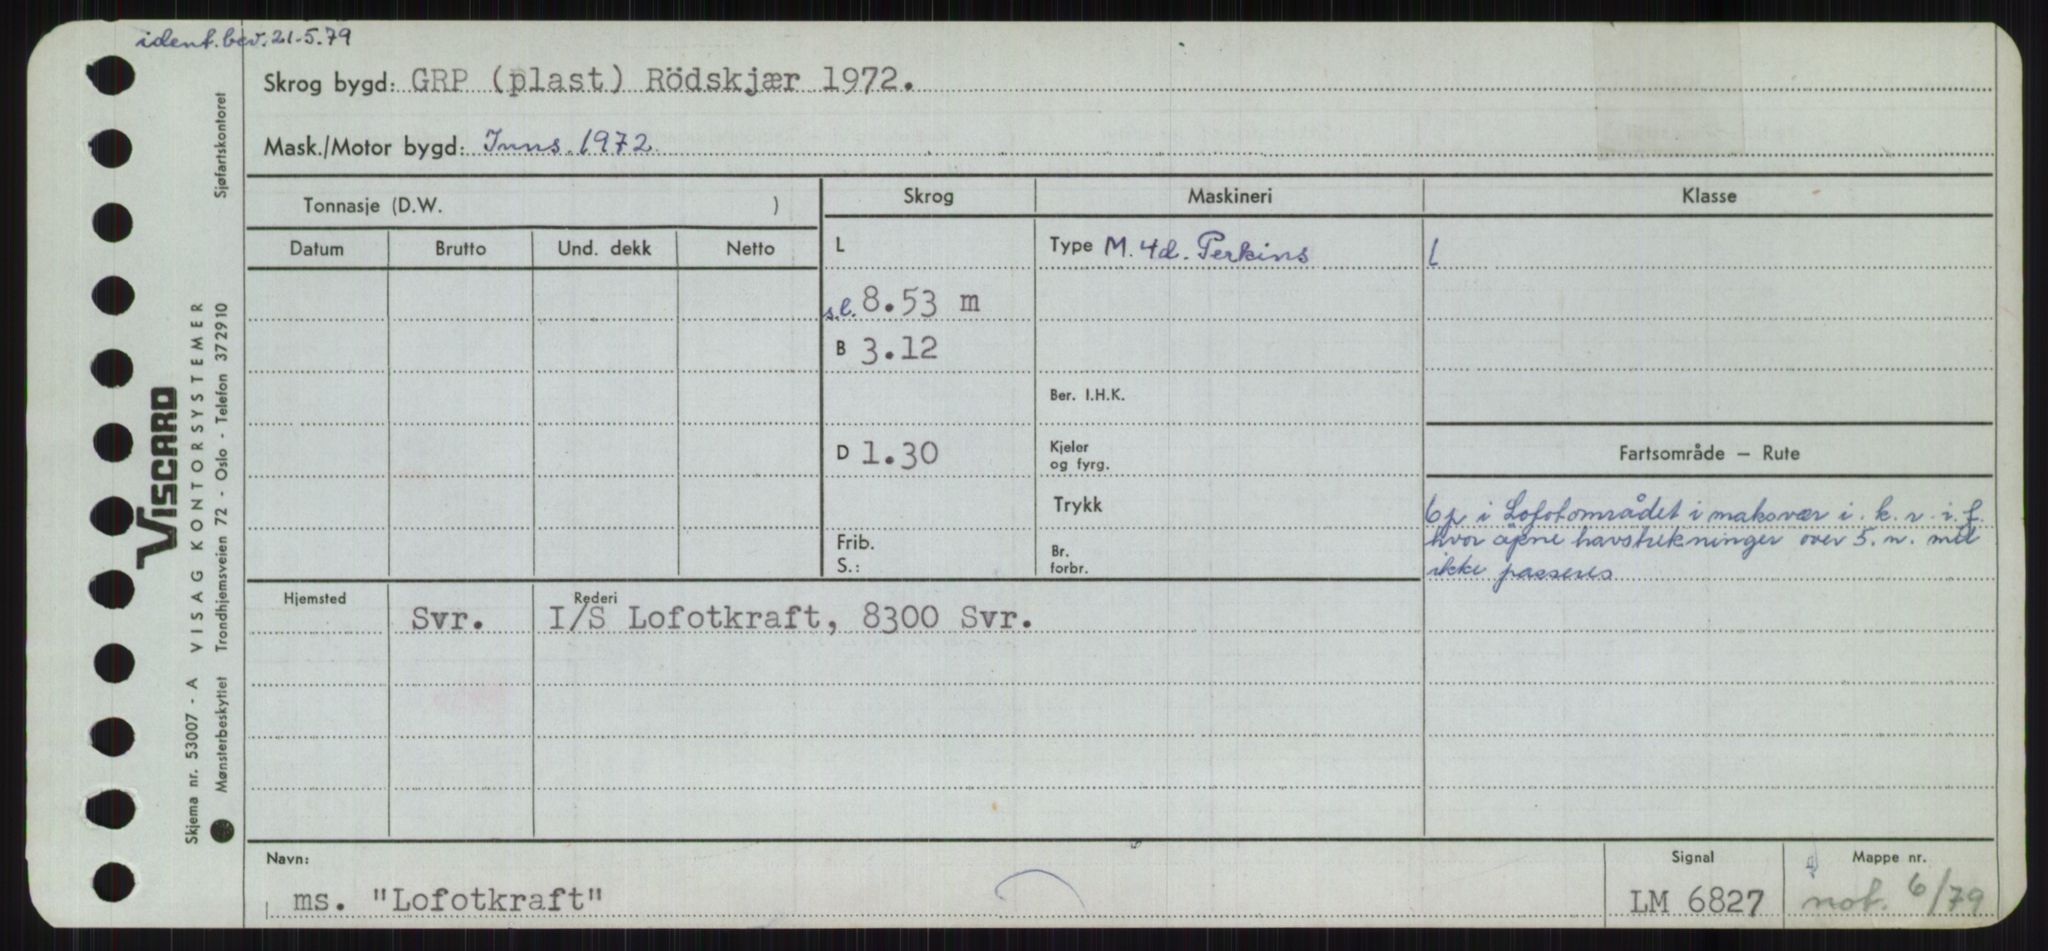 ident.bev. 21-5.79
Skrog bygd: GRP (plast) Rödskjær 1972.
Mask./Motor bygd: Inns. 1972
Tonnasje (D.W. )
Datum Brutto Und. dekk Netto
Skrog Maskineri Klasse
L Type M. 4d. Perkins L
s.l. 8.53 m
B 3.12
Ber. I.H.K.
D 1.30
Kjeler og fyrg.
Trykk
Frib.
S.:
Br. forbr.
Fartsområde — Rute
6p i Lofotområdet i maksvær i. k. v. i. f.
hvor åpne havstrekninger over 5. n. mil
ikke passeres
Hjemsted Rederi
Svr. I/S Lofotkraft, 8300 Svr.
Navn: Signal Mappe nr.
ms. "Lofotkraft" LM 6827 not. 6/79
VISCARD
Skjema nr. 53007 - A VISAG KONTORSYSTEMER
Mønsterbeskyttet Trondhjemsveien 72 - Oslo - Telefon 372910 Sjøfartskontoret